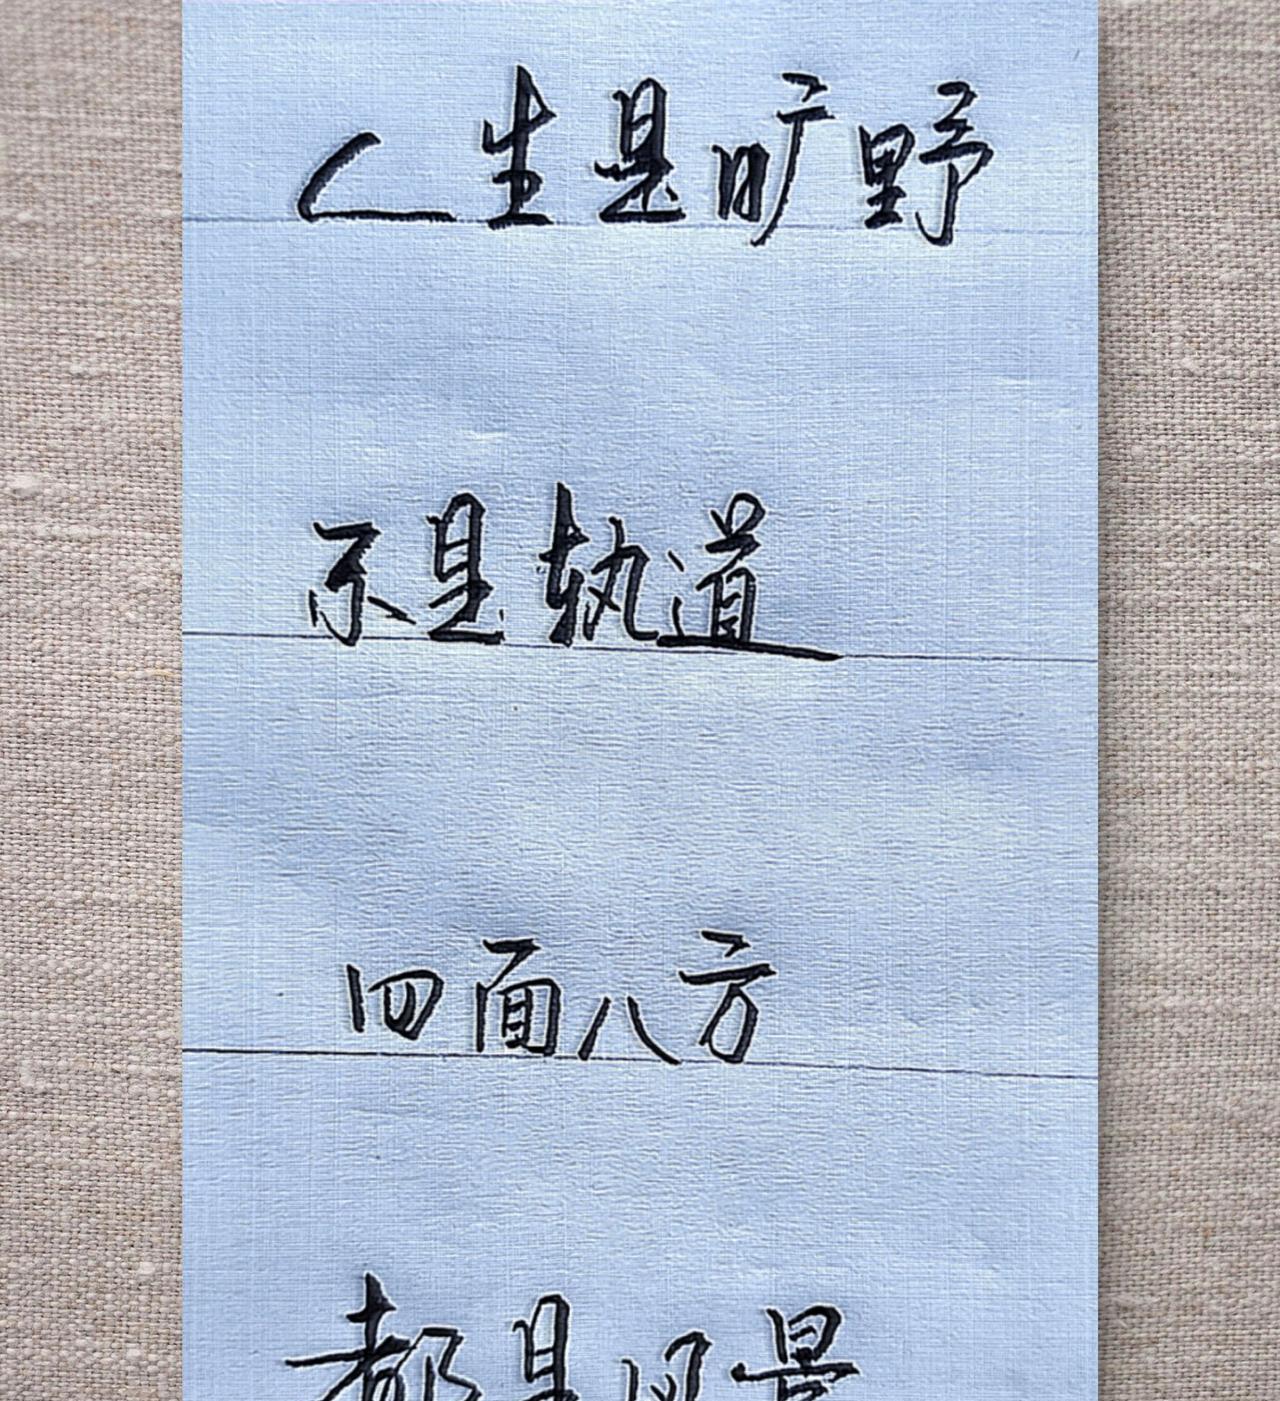 人生是旷野
不是轨道
四面八方
都是风景